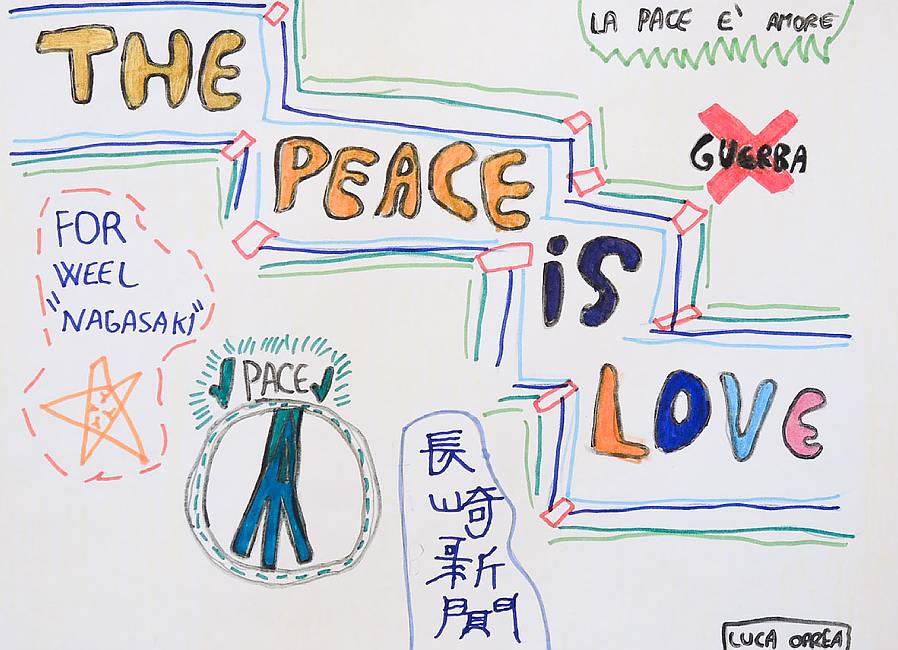 THE
PEACE
is
LOVE
LA PACE E' AMORE
GUERRA
FOR
WEEL
"NAGASAKI"
PACE
長崎新聞
LUCA OPREA